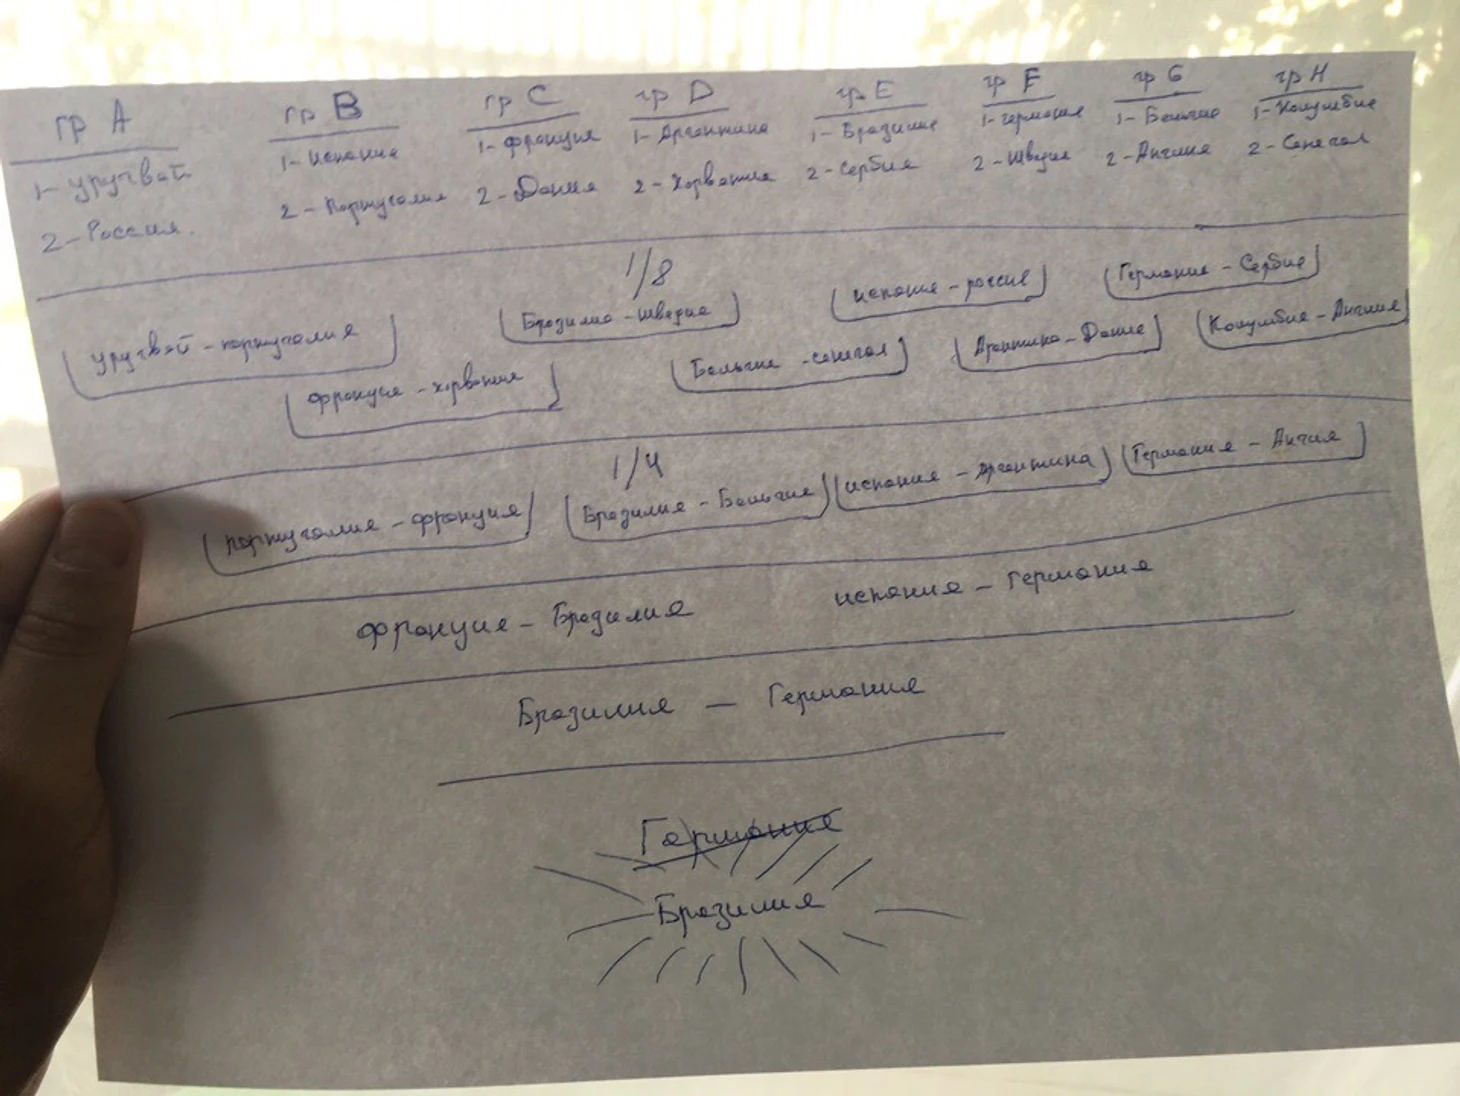 гр A гр B гр C гр D гр E гр F гр G гр H
1- Уругвай 1- Испания 1- Франция 1- Аргентина 1- Бразилия 1- Германия 1- Бельгия 1- Колумбия
2- Россия. 2- Португалия 2- Дания 2- Хорватия 2- Сербия 2- Швеция 2- Англия 2- Сенегал
1/8
Уругвай - португалия Бразилия - швеция испания - россия Германия - Сербия
Франция - хорватия Бельгия - сенегал Аргентина - Дания Колумбия - Англия
1/4
португалия - франция Бразилия - Бельгия испания - Аргентина Германия - Англия
Франция - Бразилия испания - Германия
Бразилия - Германия
Германия
Бразилия